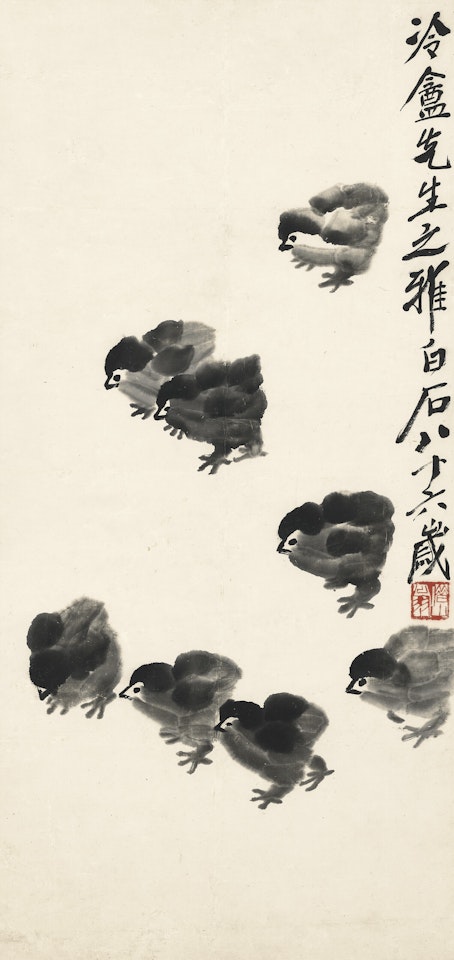 泠盦先生之雅白石八十六歲